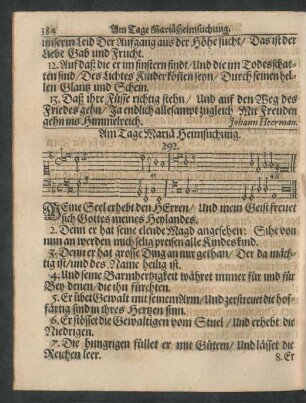 384 Am Tage Mariä Heimsuchung.
unserm Leid Der Aufgang aus der Höhe sucht / Das ist der
liebe Gab und Frucht.
12. Auf daß die er im finstern findt / Und die im Todesschat-
ten sind / Des Lichtes Kinder seyn / Durch seinen hel-
len Glantz und Schein.
13. Daß ihre Füsse richtig stehn / Und auf den Weg des
Friedes gehn / Ja endlich allesampt zugleich Mit Freuden
gehn ins Himmelreich. Johann Heerman.
Am Tage Mariä Heimsuchung.
292.
MEine Seel erhebt den HErren / Und mein Geist freuet
sich Gottes meines Heylandes.
2. Denn er hat seine elende Magd angesehen: Sihe von
nun an werden mich selig preisen alle Kindes Kind.
3. Denn er hat grosse Ding an mir gethan / Der da mäch-
tig ist / und des Name heilig ist.
4. Und seine Barmhertzigkeit währet immer für und für
Bey denen / die ihn fürchten.
5. Er übet Gewalt mit seinem Arm / Und zerstreuet die hof-
färtig sind in ihres Hertzen sinn.
6. Er stösset die Gewaltigen vom Stuel / Und erhebt die
Niedrigen.
7. Die hungrigen füllet er mit Gütern / Und lässet die
Reichen leer. 8. Er